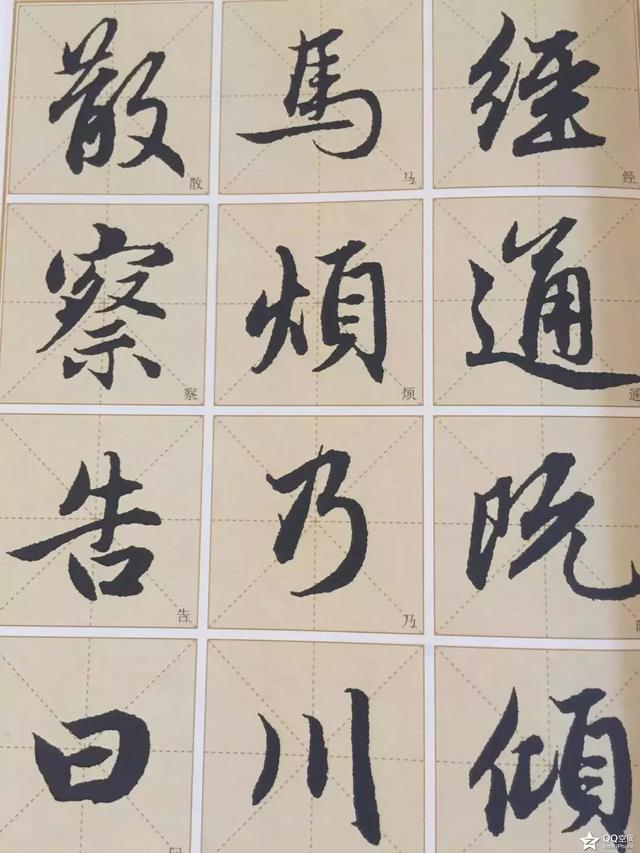 經
经
通
通
既
傾
馬
马
煩
烦
乃
乃
川
散
散
察
察
告
告
曰
QQ空间